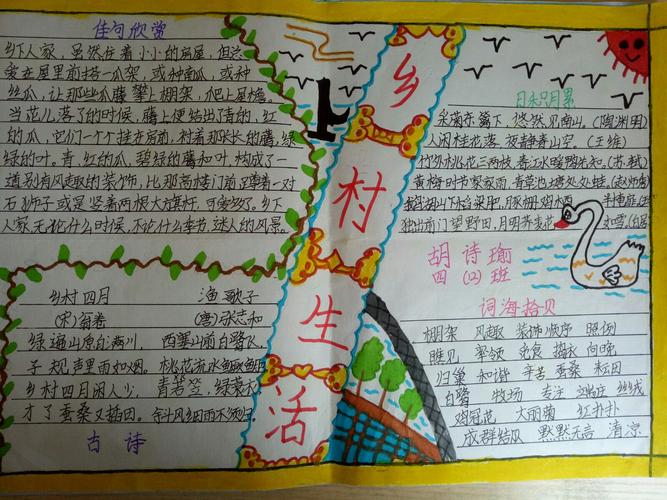 佳句欣赏
乡下人家，虽然住着小小的房屋，但总
爱在屋前搭一瓜架，或种南瓜，或种
丝瓜，让那些瓜藤攀上棚架，爬上屋檐。
当花儿落了的时候，藤上便结出了青的，红
的瓜，它们一个个挂在房前，衬着那长长的藤，绿
绿的叶。青，红的瓜，碧绿的藤和叶，构成了一
道别有风趣的装饰，比那高楼门前蹲着一对
石狮子或是竖着两根大旗杆，可爱多了。乡下
人家，无论什么时候，不论什么季节，迷人的风景。
乡村四月
(宋)翁卷
绿遍山原白满川，
子规声里雨如烟。
乡村四月闲人少，
才了蚕桑又插田。
渔歌子
(唐)张志和
西塞山前白鹭飞，
桃花流水鳜鱼肥
青箬笠，绿蓑衣
斜风细雨不须归。
古诗
乡村生活
日积月累
采菊东篱下，悠然见南山。(陶渊明)
人闲桂花落，夜静春山空。(王维)
竹外桃花三两枝，春江水暖鸭先知。(苏轼)
黄梅时节家家雨，青草池塘处处蛙。(赵师秀)
独出前门望野田，月明荞麦花
胡诗瑜
四(12)班
词海拾贝
棚架 风趣 装饰 顺序 照例
瞧见 率领 觅食 捣衣 向晚
归巢 和谐 辛苦 蚕桑 耘田
白鹭 牧场 专注
鸡冠花 大丽菊 红扑扑
成群结队 默默无言 清凉